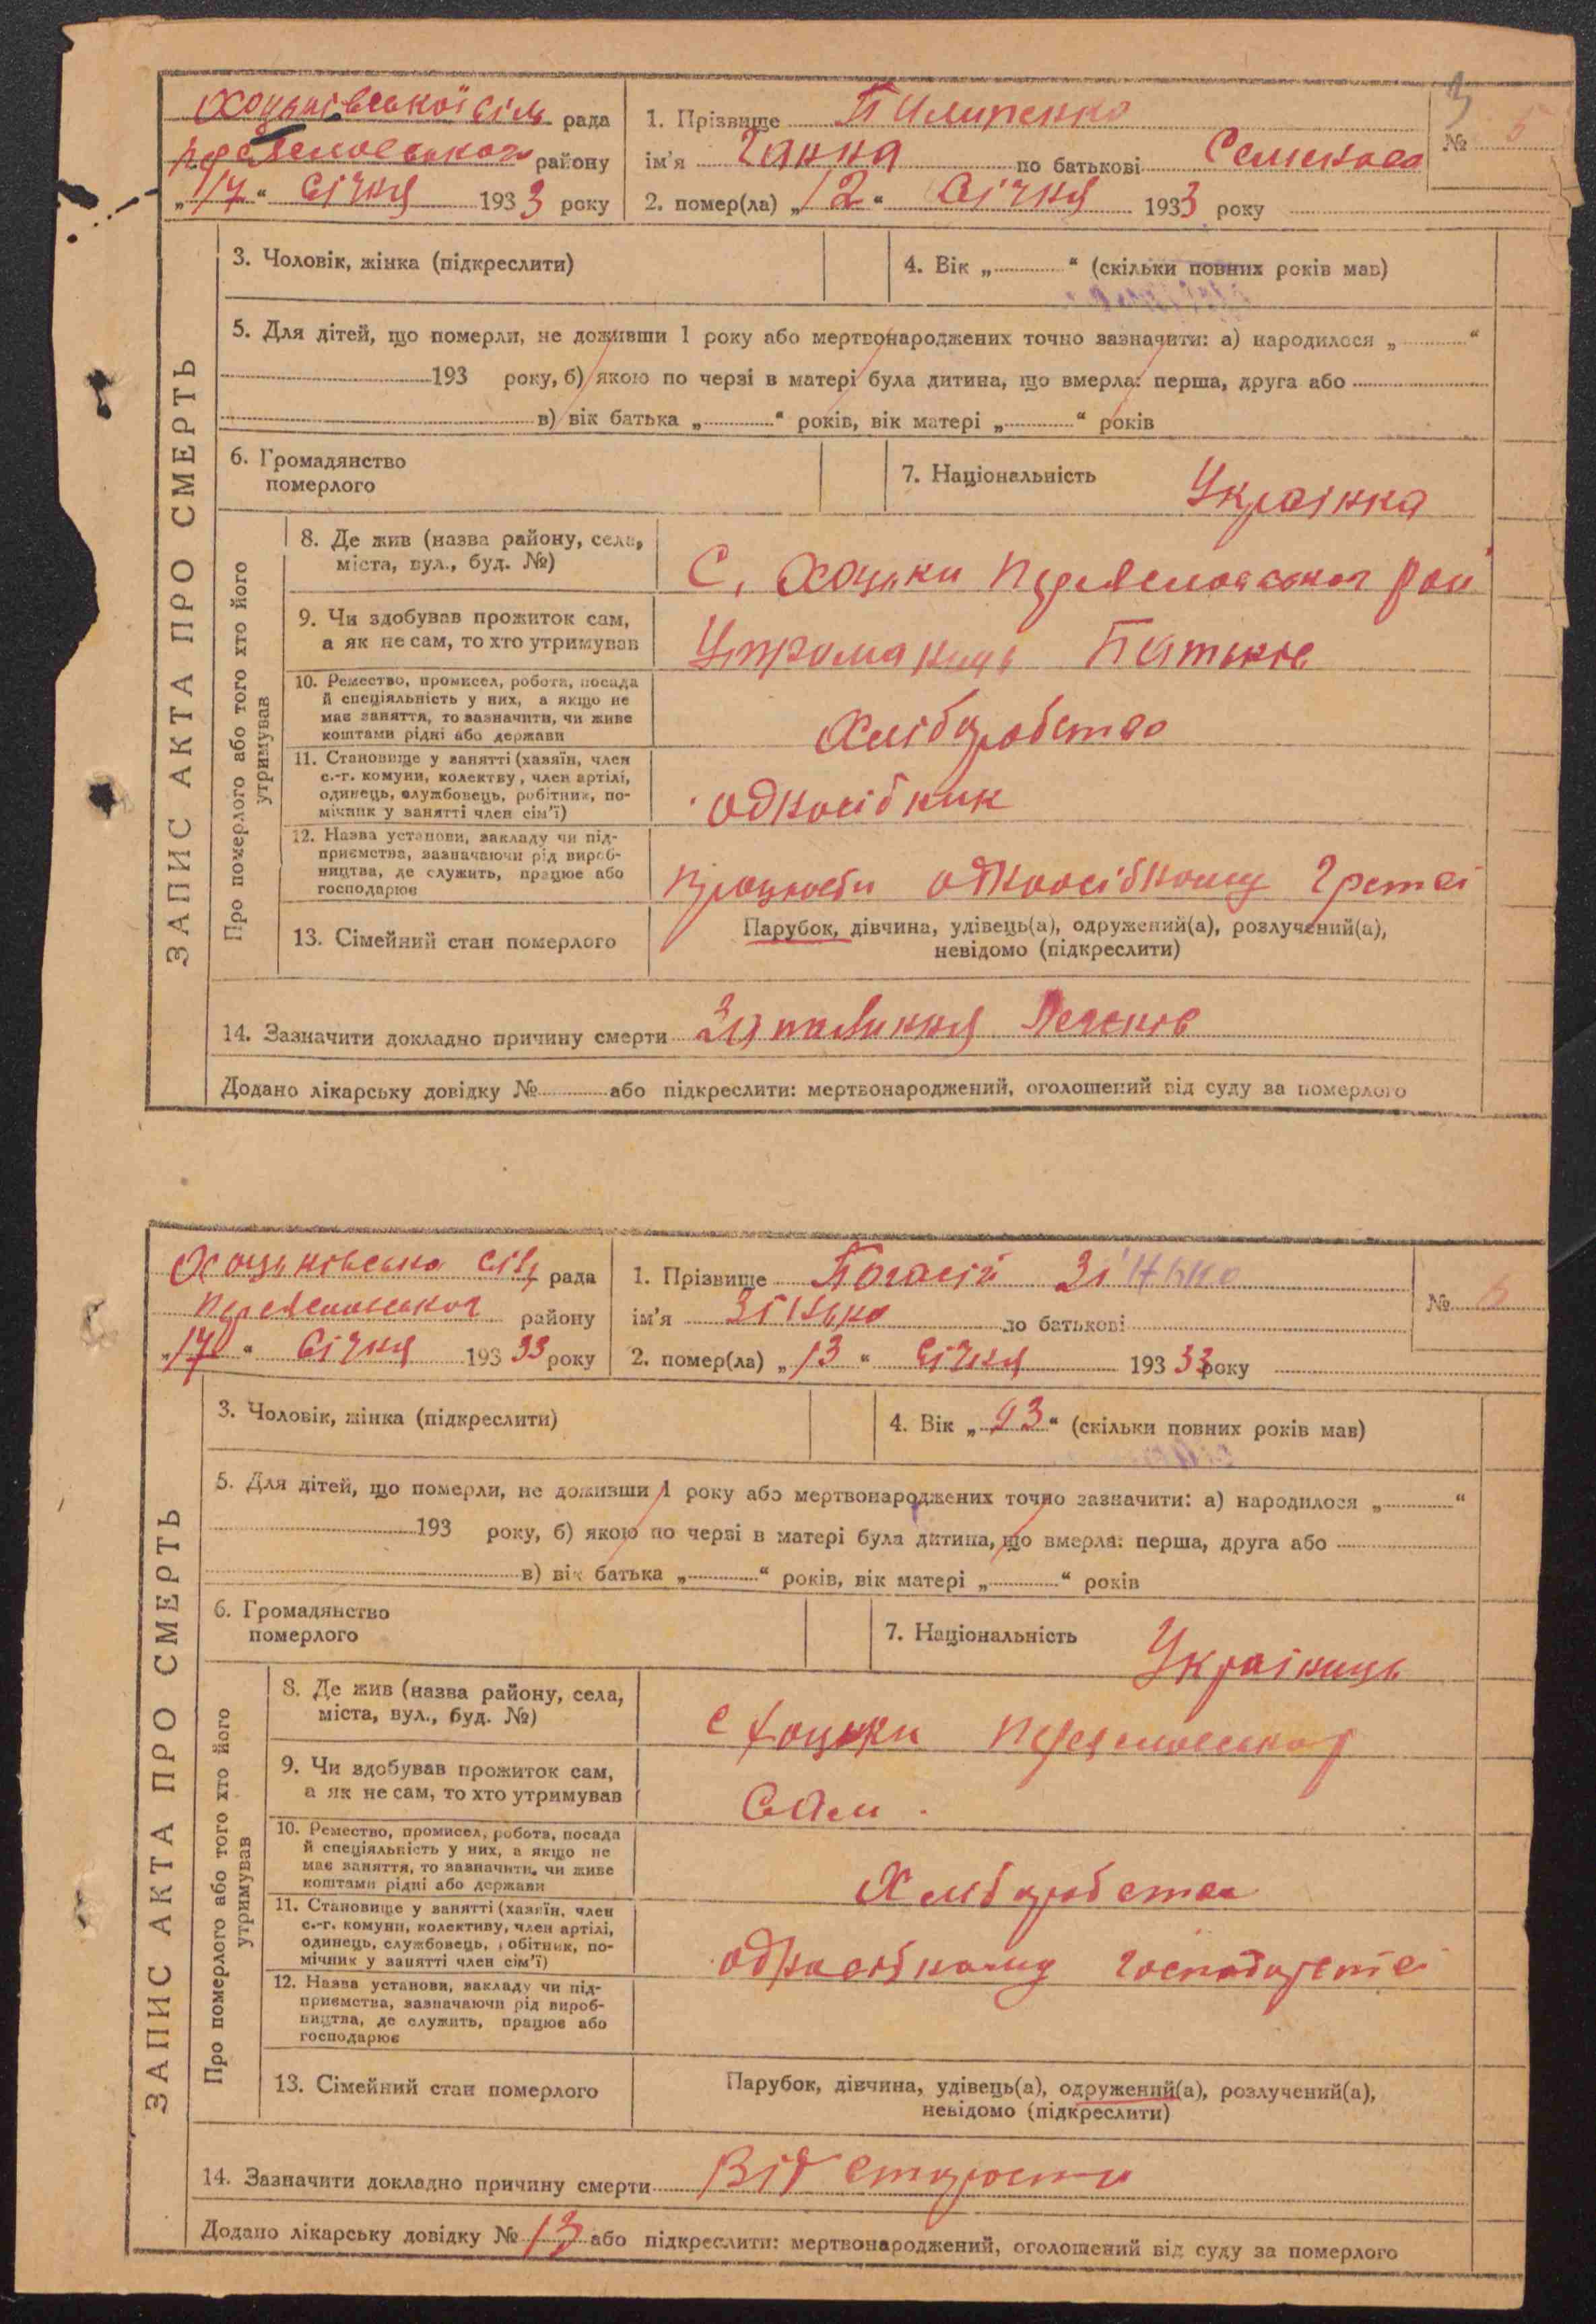 Хоцьківської сіль рада
Переяславського району
„17“ січня 1933 року
1. Прізвище Пилипенко
ім'я Ганна по батькові Семенова
2. помер(ла) „12“ січня 1933 року
№ 5
3
ЗАПИС АКТА ПРО СМЕРТЬ
3. Чоловік, жінка (підкреслити)
4. Вік „ “ (скільки повних років мав)
5. Для дітей, що померли, не доживши 1 року або мертвонароджених точно зазначити: а) народилося „ “
193 року, б) якою по черзі в матері була дитина, що вмерла: перша, друга або
в) вік батька „ “ років, вік матері „ “ років
6. Громадянство
померлого
7. Національність Українка
Про померлого або того хто його
утримував
8. Де жив (назва району, села,
міста, вул., буд. №)
С. Хоцьки Переяславськог рай
9. Чи здобував прожиток сам,
а як не сам, то хто утримував
Утриманець Батьків
10. Ремество, промисел, робота, посада
й спеціяльність у них, а якщо не
має заняття, то зазначити, чи живе
коштами рідні або держави
Хліборобство
11. Становище у занятті (хазяїн, член
с.-г. комуни, колектву, член артілі,
одинець, службовець, робітник, по-
мічник у занятті член сім'ї)
одноосібник
12. Назва установи, закладу чи під-
приємства, зазначаючи рід вироб-
ництва, де служить, працює або
господарює
одноосібному
13. Сімейний стан померлого
Парубок, дівчина, удівець(а), одружений(а), розлучений(а),
невідомо (підкреслити)
14. Зазначити докладно причину смерти Запалення Легенів
Додано лікарську довідку № або підкреслити: мертвонароджений, оголошений від суду за померлого
Хоцьківська сіль рада
Переяславськог району
„17“ січня 193 33 року
1. Прізвище Погасій Зінько
ім'я Зінько по батькові
2. помер(ла) „13“ січня 193 33 року
№ 6
ЗАПИС АКТА ПРО СМЕРТЬ
3. Чоловік, жінка (підкреслити)
4. Вік „93“ (скільки повних років мав)
5. Для дітей, що померли, не доживши 1 року або мертвонароджених точно зазначити: а) народилося „ “
193 року, б) якою по черзі в матері була дитина, що вмерла: перша, друга або
в) вік батька „ “ років, вік матері „ “ років
6. Громадянство
померлого
7. Національність Українець
Про померлого або того хто його
утримував
8. Де жив (назва району, села,
міста, вул., буд. №)
с Хоцьки Переяславськог р
9. Чи здобував прожиток сам,
а як не сам, то хто утримував
Сам.
10. Ремество, промисел, робота, посада
й спеціяльність у них, а якщо не
має заняття, то зазначити, чи живе
коштами рідні або держави
Хліборобство
11. Становище у занятті (хазяїн, член
с.-г. комуни, колективу, член артілі,
одинець, службовець, робітник, по-
мічник у занятті член сім'ї)
одноосібному господарстві
12. Назва установи, закладу чи під-
приємства, зазначаючи рід вироб-
ництва, де служить, працює або
господарює
13. Сімейний стан померлого
Парубок, дівчина, удівець(а), одружений(а), розлучений(а),
невідомо (підкреслити)
14. Зазначити докладно причину смерти Від старости
Додано лікарську довідку № 13 або підкреслити: мертвонароджений, оголошений від суду за померлого